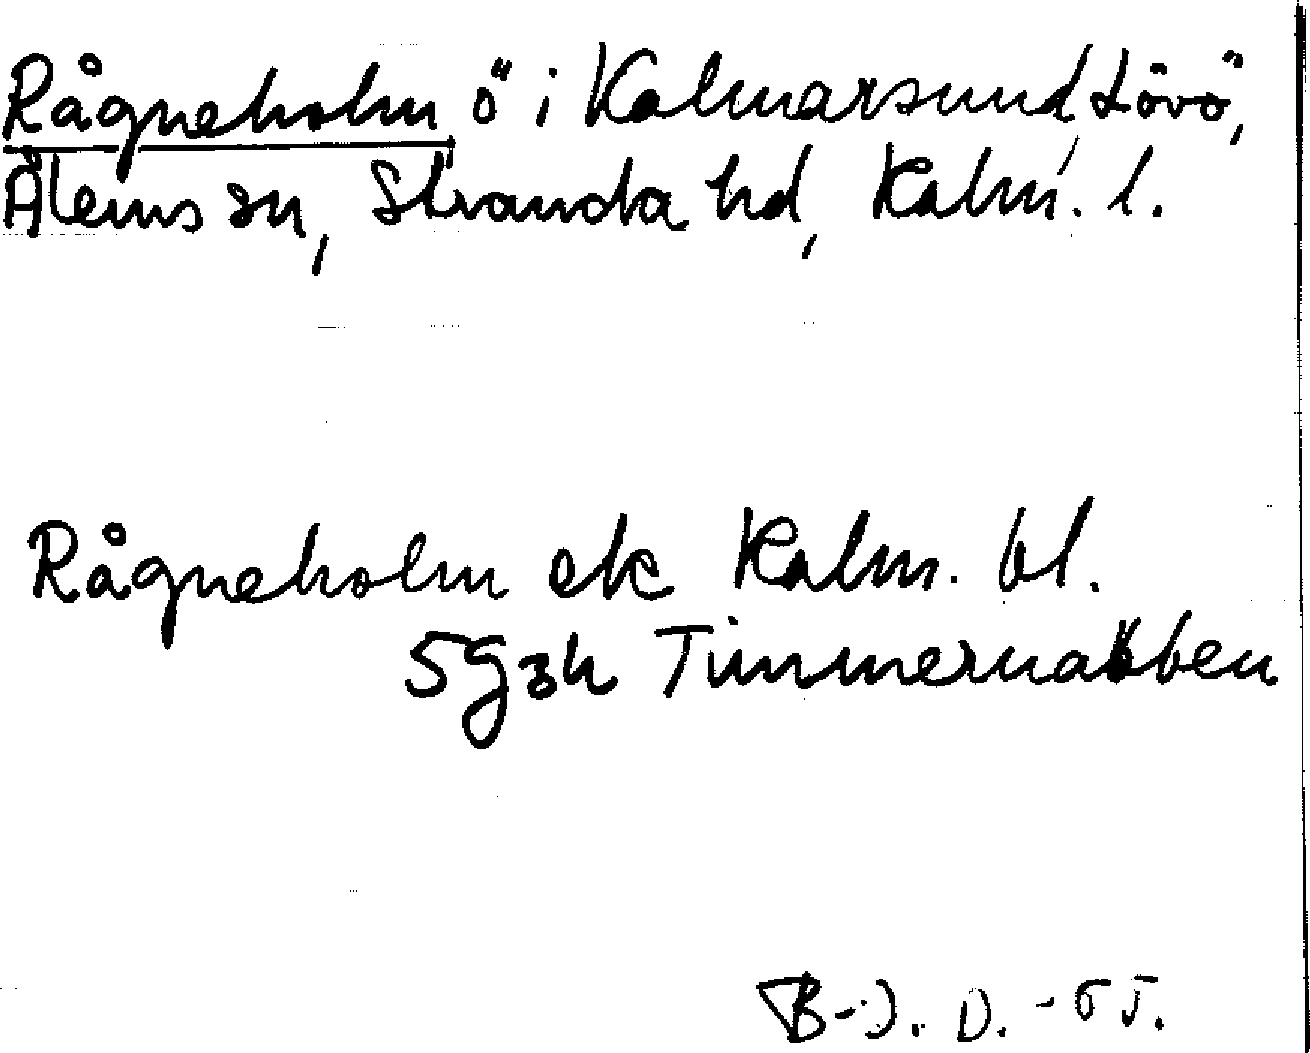 Rågneholm, ö i Kalmarsund, Lövö,
Ålems sn, Stranda hd, Kalm. l.
Rågneholm ek Kalm. bl.
5g3h Timmernabben
B-J. D. -65.